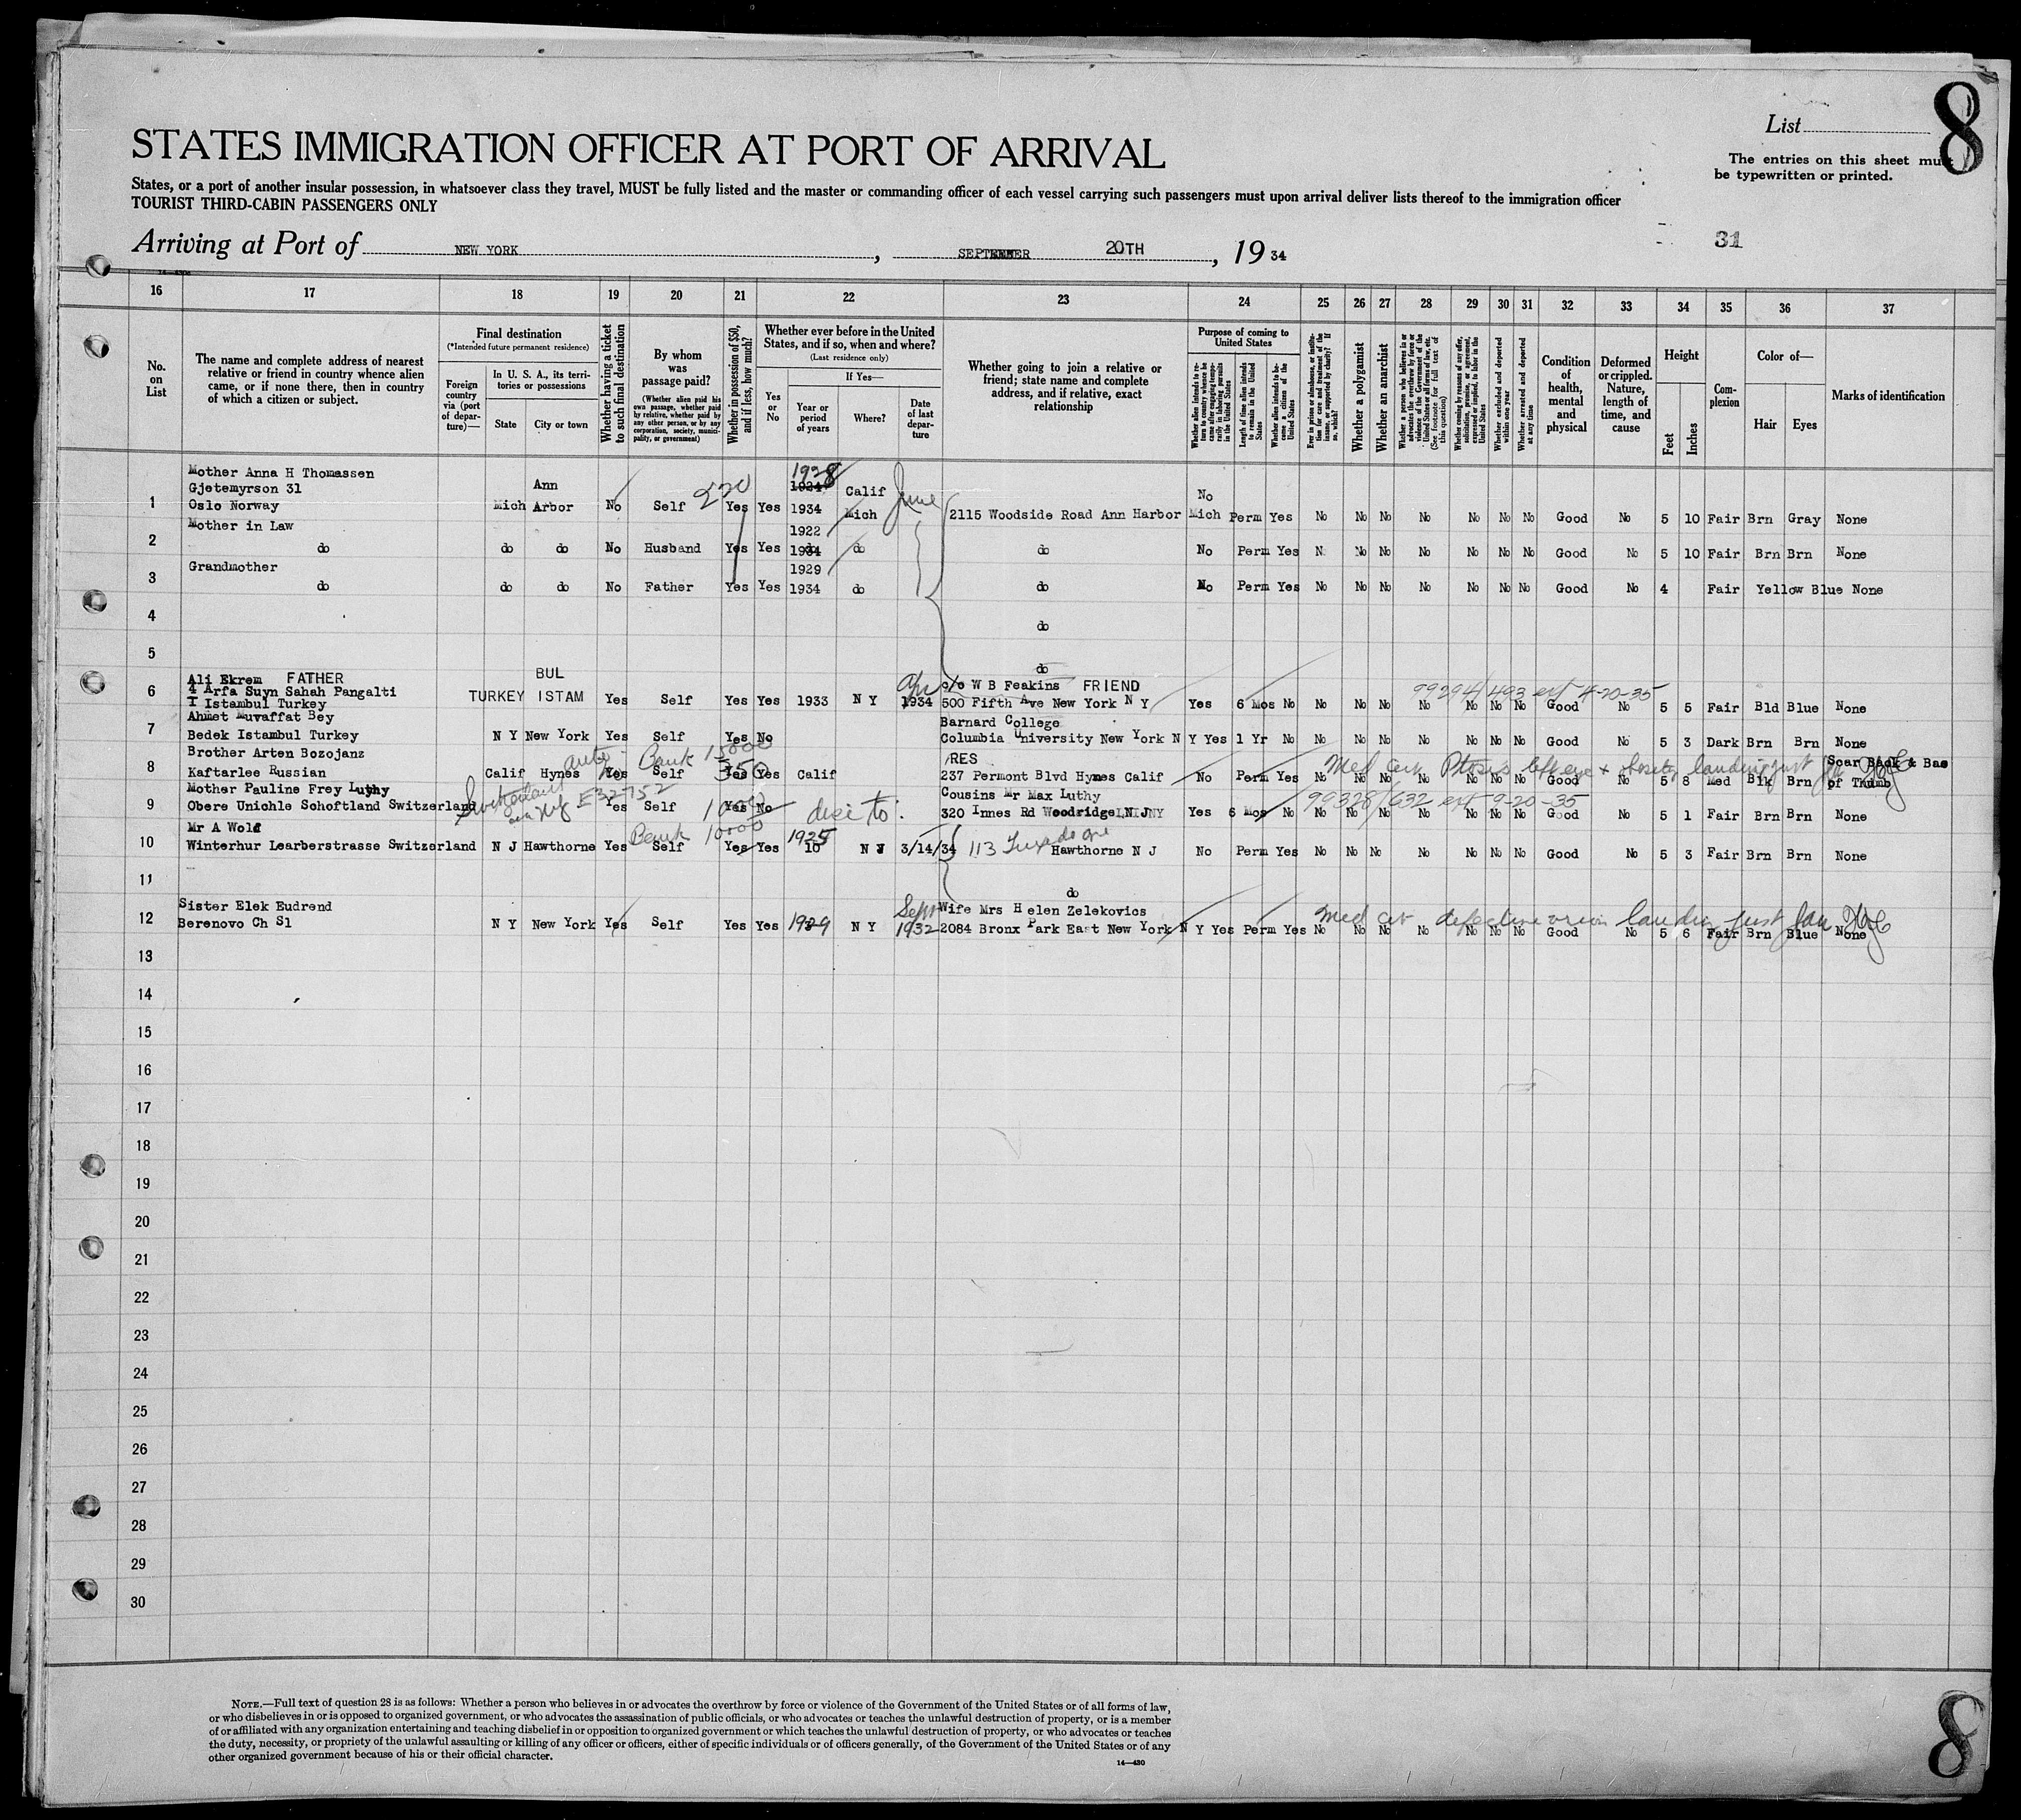 8
List
STATES IMMIGRATION OFFICER AT PORT OF ARRIVAL
The entries on this sheet must
be typewritten or printed.
States, or a port of another insular possession, in whatsoever class they travel, MUST be fully listed and the master or commanding officer of each vessel carrying such passengers must upon arrival deliver lists thereof to the immigration officer
TOURIST THIRD-CABIN PASSENGERS ONLY
Arriving at Port of NEW YORK, SEPTEMBER 20TH, 19 34
31
16 17 18 19 20 21 22 23 24 25 26 27 28 29 30 31 32 33 34 35 36 37
No. on List
The name and complete address of nearest relative or friend in country whence alien came, or if none there, then in country of which a citizen or subject.
Final destination
(*Intended future permanent residence)
Foreign country via (port of departure)—
In U. S. A., its territories or possessions
State
City or town
Whether having a ticket to such final destination
By whom was passage paid?
(Whether alien paid his own passage, whether paid by relative, whether paid by any other person, or by any corporation, society, municipality, or government)
Whether in possession of $50, and if less, how much?
Whether ever before in the United States, and if so, when and where?
(Last residence only)
Yes or No
If Yes—
Year or period of years
Where?
Date of last departure
Whether going to join a relative or friend; state name and complete address, and if relative, exact relationship
Purpose of coming to United States
Length of time alien intends to remain in the United States
Whether alien intends to become a citizen of the United States
Whether a polygamist
Whether an anarchist
Whether excluded and deported within one year
Whether arrested and deported at any time
Condition of health, mental and physical
Deformed or crippled. Nature, length of time, and cause
Height
Feet
Inches
Complexion
Color of—
Hair
Eyes
Marks of identification
Mother Anna H Thomassen 1928
Gjetemyrson 31 Ann 220 1924 Calif June No
1 Oslo Norway Mich Arbor No Self Yes Yes 1934 Mich 2115 Woodside Road Ann Harbor Mich Perm Yes No No No No No No No Good No 5 10 Fair Brn Gray None
Mother in Law 1922
2 do do do No Husband Yes Yes 1934 do do No Perm Yes No No No No No No No Good No 5 10 Fair Brn Brn None
Grandmother 1929
3 do do do No Father Yes Yes 1934 do do No Perm Yes No No No No No No No Good No 4 Fair Yellow Blue None
4 do
5 do
Ali Ekrem FATHER BUL c/o W B Feakins FRIEND
4 Arfa Suyn Sahah Pangalti 99294/493 ext 4-20-35
6 Istambul Turkey TURKEY ISTAM Yes Self Yes Yes 1933 N Y 1934 500 Fifth Ave New York N Y Yes 6 Mos No No No No No No No No Good No 5 5 Fair Bld Blue None
Ahmet Muvaffat Bey Barnard College
7 Bedek Istambul Turkey N Y New York Yes Self Yes No Columbia University New York N Y Yes 1 Yr No No No No No No No No Good No 5 3 Dark Brn Brn None
Brother Arten Bozojanz Bank 15000 RES Scar Back & Bas
8 Kaftarlee Russian Calif Hynes Yes Self Yes Yes Calif 237 Permont Blvd Hynes Calif No Perm Yes No No No No No No No Good No 5 8 Med Blk Brn of Thumb
Med cert Ptosis left eye
Mother Pauline Frey Luthy Switzerland E32752 Cousins Mr Max Luthy 99328/632 ext 9-20-35
9 Obere Uniohle Schoftland Switzerland Yes Self Yes No 320 Innes Rd Woodridge N J Yes 6 Mos No No No No No No No No Good No 5 1 Fair Brn Brn None
Mr A Wolf Bank 10000 1925
10 Winterhur Learberstrasse Switzerland N J Hawthorne Yes Self Yes Yes 10 N J 3/14/34 113 Hawthorne N J No Perm Yes No No No No No No No Good No 5 3 Fair Brn Brn None
11 do
Sister Elek Eudrend Sept Wife Mrs Helen Zelekovics
12 Berenovo Ch Sl N Y New York Yes Self Yes Yes 1929 N Y 1932 2084 Bronx Park East New York N Y Yes Perm Yes No No No No No No No Good No 5 6 Fair Brn Blue None
13
14
15
16
17
18
19
20
21
22
23
24
25
26
27
28
29
30
NOTE.—Full text of question 28 is as follows: Whether a person who believes in or advocates the overthrow by force or violence of the Government of the United States or of all forms of law,
or who disbelieves in or is opposed to organized government, or who advocates the assassination of public officials, or who advocates or teaches the unlawful destruction of property, or is a member
of or affiliated with any organization entertaining and teaching disbelief in or opposition to organized government or which teaches the unlawful destruction of property, or who advocates or teaches
the duty, necessity, or propriety of the unlawful assaulting or killing of any officer or officers, either of specific individuals or of officers generally, of the Government of the United States or of any
other organized government because of his or their official character.
14—430
8